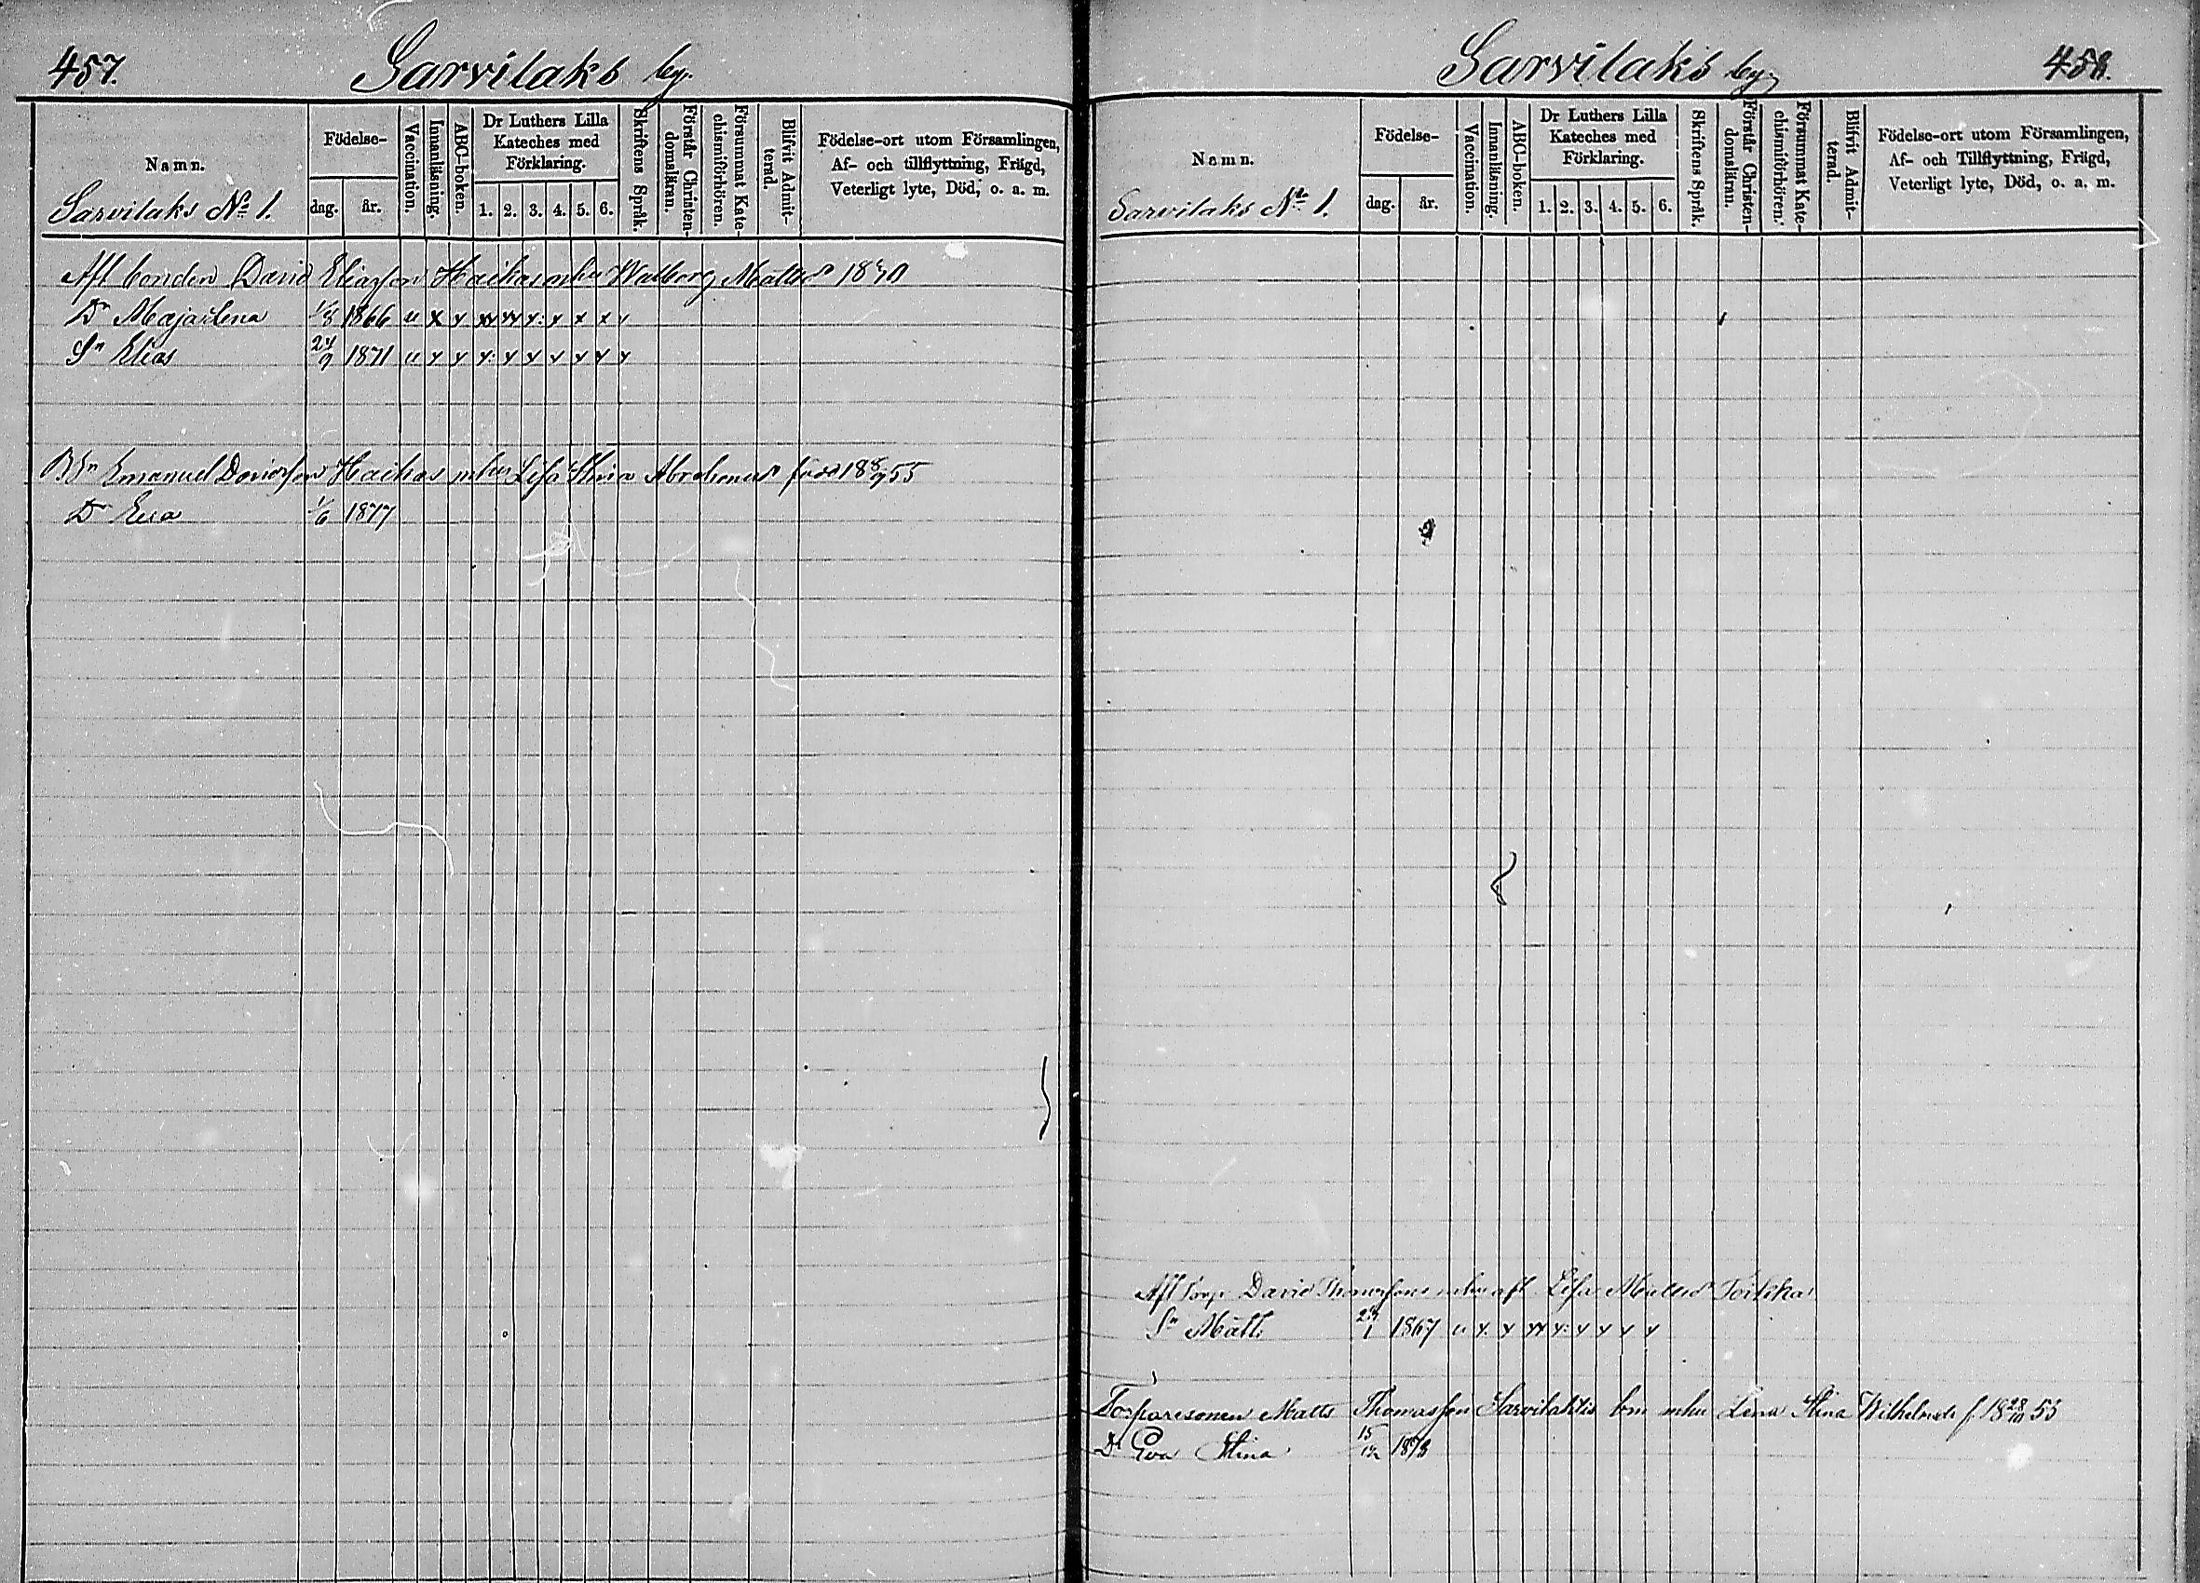 457.
Sarvilaks by.
Namn.
Födelse-
dag. år.
Vaccination.
Innanläsning.
ABC-boken.
Dr Luthers Lilla
Kateches med
Förklaring.
1. 2. 3. 4. 5. 6.
Skriftens Språk.
Förstår Christen-
domsläran.
Försummat Kate-
chismiförhören.
Blifvit Admit-
terad.
Födelse-ort utom Församlingen,
Af- och tillflyttning, Frägd,
Veterligt lyte, Död, o. a. m.
Sarvilaks No 1.
Afl bonden David Eliasson Haikas Walborg Matts
Dr Maja Lena 1/8 1866 u x x xx xx x: x x x x
Sn Elias 24/9 1871 u x x x: x x x x x x
Bdn Emanuel Davidsson Haikas mhu Lisa Stina Abrahamsd född 18 8/9 55
Dr Eva 1/6 1877
458.
Sarvilaks by
Namn.
Födelse-
dag. år.
Vaccination.
Innanläsning.
ABC-boken.
Dr Luthers Lilla
Kateches med
Förklaring.
1. 2. 3. 4. 5. 6.
Skriftens Språk.
Förstår Christen-
domsläran.
Försummat Kate-
chismiförhören.
Blifvit Admit-
terad.
Födelse-ort utom Församlingen,
Af- och Tillflyttning, Frägd,
Veterligt lyte, Död, o. a. m.
Sarvilaks No 1.
Afl torp David Thomasson mhu afl. Lisa Mattsd
Sn Matts 1867 u x: x xx x: x x x x
Torparesonen Matts Thomasson Sarvilahtis mhu Lena Stina Wilhelmsd f. 18 28/10 55
Dr Eva Stina 15/12 1878